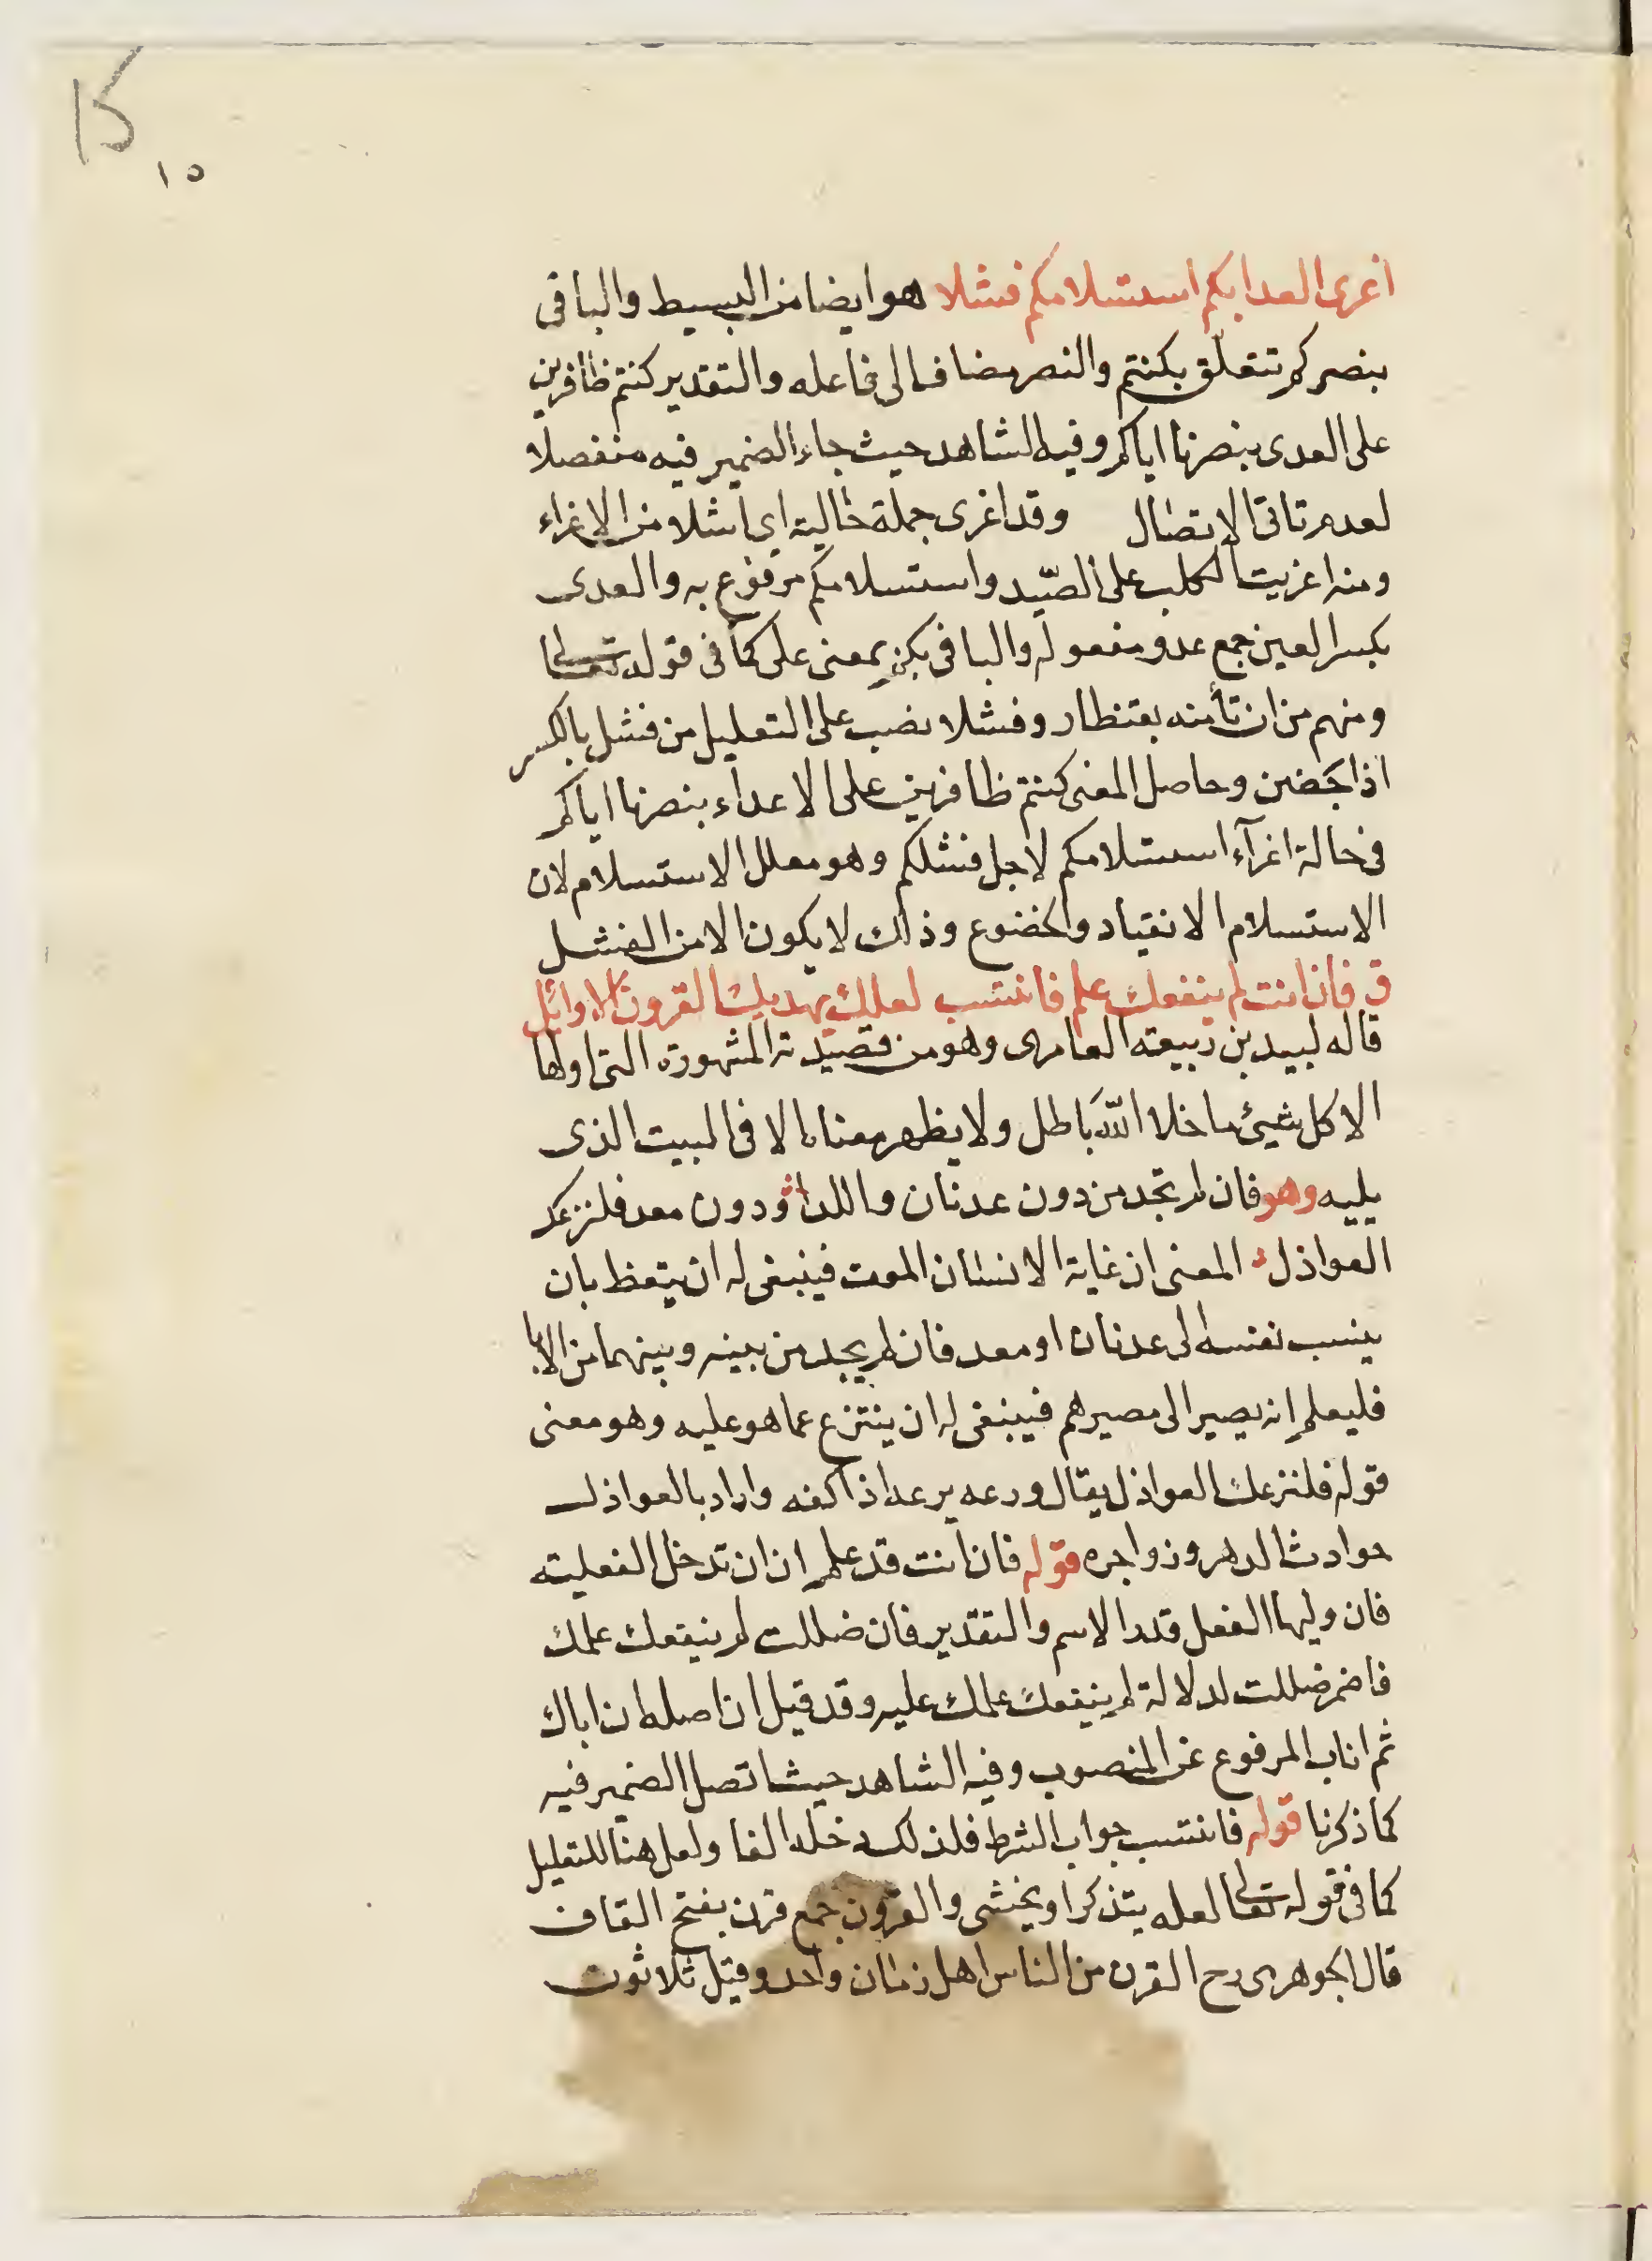 ١٥
اغرى العدا بكم استسلامكم فشلا هو ايضا من البسيط والبا فى
بنصركم تتعلق بكنتم والنصر مضاف الى فاعله والتقدير كنتم ظافرين
على العدى بنصرنا اياكم وفيه الشاهد حيث جاء الضمير فيه منفصلا
لعدم تاتى الاتصال وقد اغرى جملة حالية اى اشلا من الاغراء
ومنه اغريت الكلب على الصّيد واستسلامكم مرفوع به والعدى
بكسر العين جمع عدو مفعوله والبا فى بكم بمعنى على كما فى قوله تعالى
ومنهم من ان تأمنه بقنطار وفشلا نصب على التعليل من فشل بالكسر
اذا جَضين وحاصل المعنى كنتم ظافرين على الاعداء بنصرنا اياكم
فى حالة اغرآء استسلامكم لاجل فشلكم وهو معلل الاستسلام لان
الاستسلام الانقياد والخضوع وذلك لا يكون الا من الفشل
ق فان انت لم ينفعك علم فانتسب لعلك يهديك القرون الاوائل
قاله لبيد بن ربيعته العامرى وهو من قصيدته المشهورة التى اولها
الا كل شيئ ما خلا اللّٰه باطل ولا يظهر معناه الا فى البيت الذى
يليه وهو فان لم تجد من دون عدنان واللدا ودون معد فلنزعك
العواذل المعنى ان غاية الانسان الموت فينبغى له ان يتعظ بان
ينسب نفسه الى عدنان او معد فان لم يجد من بينه وبينهما من الابا
فليعلم انه يصير الى مصيرهم فينبغى له ان ينتزع عما هو عليه وهو معنى
قوله فلنزعك العواذل يقال ورعه يرعه اذا كفه واراد بالعواذل
حوادث الدهر وزواجره قوله فان انت قد علم ان ان تدخل الفعلية
فان وليها الفعل قدر الاسم والتقدير فان ضللت لم ينفعك علمك
فاضمر ضللت لدلالة لم ينفعك علمك عليه وقد قيل ان اصله ان اياك
ثم اناب المرفوع عن المنصوب وفيه الشاهد حيث اتصل الضمير فيه
كما ذكرنا قوله فانتسب جواب الشرط فلذلك دخله الفا ولعل هنا للتعليل
كما فى قوله تعالى لعله يتذكر او يخشى والقرون جمع قرن بفتح القاف
قال الجوهرى رح القرن من الناس اهل زمان واحد وقيل ثلاثون